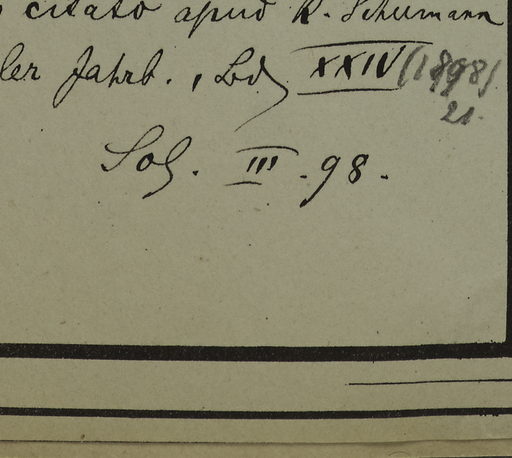 citato apud K. Schumann
ler Jahrb., Bd XXIV (1898)
21.
Sol. III. 98.